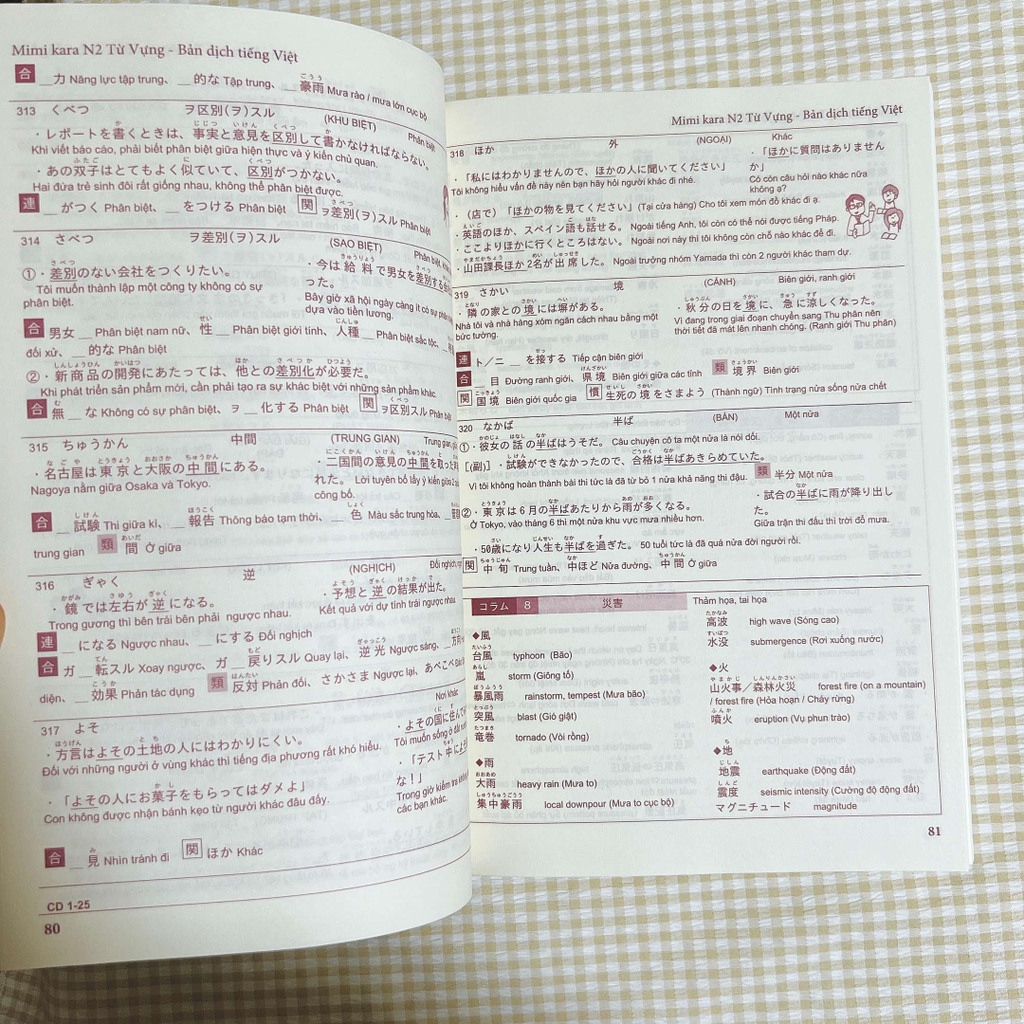 Mimi kara N2 Từ Vựng - Bản dịch tiếng Việt
合 __力 Năng lực tập trung、__的な Tập trung、__豪雨 Mưa rào / mưa lớn cục bộ
313 くべつ ヲ区別(ヲ)スル (KHU BIỆT) Phân biệt
・レポートを書くときは、事実と意見を区別して書かなければならない。
Khi viết báo cáo, phải biết phân biệt giữa hiện thực và ý kiến chủ quan.
・あの双子はとてもよく似ていて、区別がつかない。
Hai đứa trẻ sinh đôi rất giống nhau, không thể phân biệt được.
連 __がつく Phân biệt、__をつける Phân biệt 関 ヲ差別(ヲ)スル Phân biệt
314 さべつ ヲ差別(ヲ)スル (SAO BIỆT) Phân biệt,
①・差別のない会社をつくりたい。
Tôi muốn thành lập một công ty không có sự
phân biệt.
・今は給料で男女を差別する
った。
Bây giờ xã hội ngày càng ít có sự phân
dựa vào tiền lương.
合 男女__ Phân biệt nam nữ、性__ Phân biệt giới tính、人種__ Phân biệt sắc tộc、
đối xử、__的な Phân biệt
②・新商品の開発にあたっては、他との差別化が必要だ。
Khi phát triển sản phẩm mới, cần phải tạo ra sự khác biệt với những sản phẩm khác.
合 無__な Không có sự phân biệt、ヲ__化する Phân biệt 関 ヲ区別スル Phân biệt
315 ちゅうかん 中間 (TRUNG GIAN) Trung gian,
・名古屋は東京と大阪の中間にある。
Nagoya nằm giữa Osaka và Tokyo.
・二国間の意見の中間を取った
れた。 Lời tuyên bố lấy ý kiến giữa 2
công bố.
合 __試験 Thi giữa kì、__報告 Thông báo tạm thời、__色 Màu sắc trung hòa、
trung gian 類 間 Ở giữa
316 ぎゃく 逆 (NGHỊCH) Đối nghịch,
・鏡では左右が逆になる。
Trong gương thì bên trái bên phải ngược nhau.
・予想と逆の結果が出た。
Kết quả với dự tính trái ngược nhau
連 __になる Ngược nhau、__にする Đối nghịch
合 ガ__転スル Xoay ngược、ガ__戻りスル Quay lại、逆光 Ngược sáng、
diện、__効果 Phản tác dụng 類 反対 Phản đối、さかさま Ngược lại、あべこべ
317 よそ Nơi khác
・方言はよその土地の人にはわかりにくい。
Đối với những người ở vùng khác thì tiếng địa phương rất khó hiểu.
・「よその人にお菓子をもらってはダメよ」
Con không được nhận bánh kẹo từ người khác đâu đấy.
・よその国に住んで
Tôi muốn sống ở đất
・「テスト中によ
な！」
Trong giờ kiểm tra không
các bạn khác.
合 __見 Nhìn tránh đi 関 ほか Khác
CD 1-25
80
Mimi kara N2 Từ Vựng - Bản dịch tiếng Việt
318 ほか 外 (NGOẠI) Khác
・「私にはわかりませんので、ほかの人に聞いてください」
Tôi không hiểu vấn đề này nên bạn hãy hỏi người khác đi nhé.
・「ほかに質問はありません
か」
Có còn câu hỏi nào khác nữa
không ạ?
・（店で）「ほかの物を見てください」 (Tại cửa hàng) Cho tôi xem món đồ khác đi ạ.
・英語のほか、スペイン語も話せる。 Ngoài tiếng Anh, tôi còn có thể nói được tiếng Pháp.
・ここよりほかに行くところはない。 Ngoài nơi này thì tôi không còn chỗ nào khác để đi.
・山田課長ほか2名が出席した。 Ngoài trưởng nhóm Yamada thì còn 2 người khác tham dự.
319 さかい 境 (CẢNH) Biên giới, ranh giới
・隣の家との境には塀がある。
Nhà tôi và nhà hàng xóm ngăn cách nhau bằng một
bức tường.
・秋分の日を境に、急に涼しくなった。
Vì đang trong giai đoạn chuyển sang Thu phân nên
thời tiết đã mát lên nhanh chóng. (Ranh giới Thu phân)
連 ト／ニ__を接する Tiếp cận biên giới
合 __目 Đường ranh giới、県境 Biên giới giữa các tỉnh 類 境界 Biên giới
関 国境 Biên giới quốc gia 慣 生死の境をさまよう (Thành ngữ) Tình trạng nửa sống nửa chết
320 なかば 半ば (BÁN) Một nửa
①・彼女の話の半ばはうそだ。 Câu chuyện cô ta một nửa là nói dối.
[(副)]・試験ができなかったので、合格は半ばあきらめていた。
Vì tôi không hoàn thành bài thi tức là đã từ bỏ 1 nửa khả năng thi đậu. 類 半分 Một nửa
②・東京は６月の半ばあたりから雨が多くなる。
Ở Tokyo, vào tháng 6 thì một nửa khu vực mưa nhiều hơn.
・試合の半ばに雨が降り出し
た。
Giữa trận thi đấu thì trời đổ mưa.
・50歳になり人生も半ばを過ぎた。 50 tuổi tức là đã qua nửa đời người rồi.
関 中旬 Trung tuần、中ほど Nửa đường、中間 Ở giữa
コラム 8 災害 Thảm họa, tai họa
◆風
台風 typhoon (Bão)
嵐 storm (Giông tố)
暴風雨 rainstorm, tempest (Mưa bão)
突風 blast (Gió giật)
竜巻 tornado (Vòi rồng)
◆雨
大雨 heavy rain (Mưa to)
集中豪雨 local downpour (Mưa to cục bộ)
高波 high wave (Sóng cao)
水没 submergence (Rơi xuống nước)
◆火
山火事／森林火災 forest fire (on a mountain)
/ forest fire (Hỏa hoạn / Cháy rừng)
噴火 eruption (Vụ phun trào)
◆地
地震 earthquake (Động đất)
震度 seismic intensity (Cường độ động đất)
マグニチュード magnitude
81